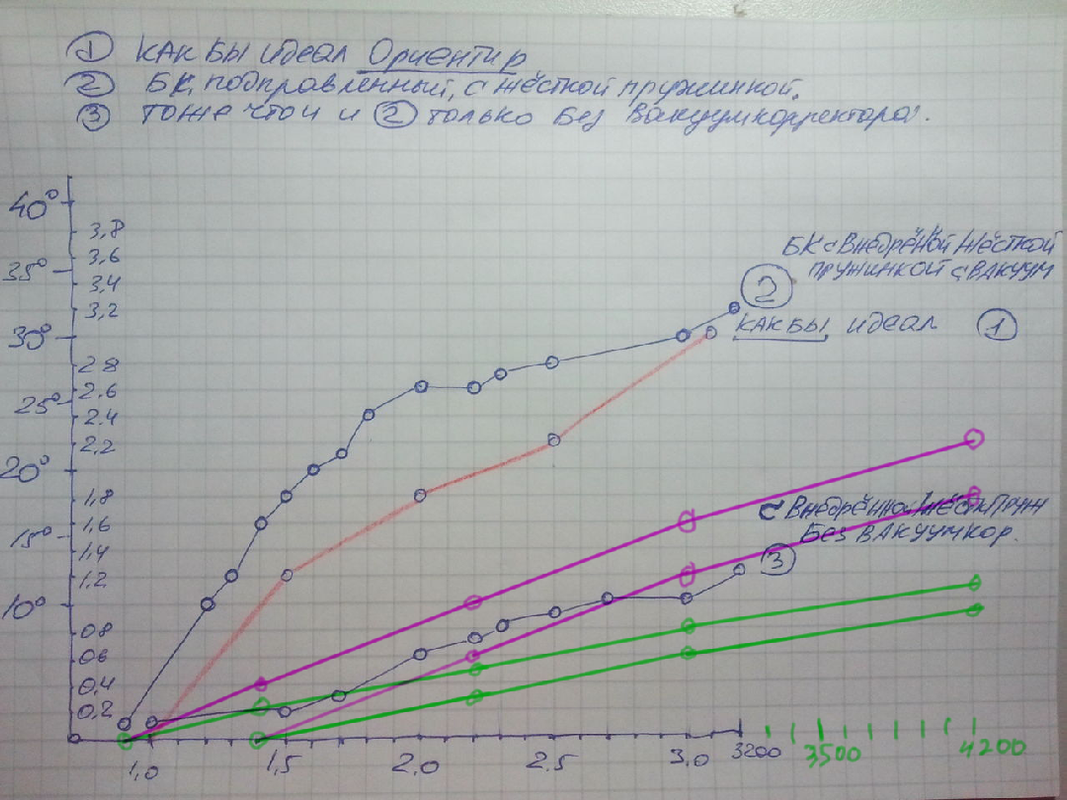 ① КАК БЫ идеал Ориентир
② БК, подправленный, с жёсткой пружинной.
③ Тоже что и ② только Без Вакуумкорректора.
40°
3,8
3,6
35°
3,4
3,2
30°
2 8
2 6
25°
2,4
2,2
20°
1,8
1,6
15°
1,4
1,2
10°
0 8
0 6
0,4
0,2
БК с Внедрёной Жёсткой
пружинкой с ВАКУУМ
②
КАК БЫ идеал ①
с Внедрённой Жёстк Пруж
Без ВАКУУМкор.
③
1,0 1,5 2,0 2,5 3,0 3200 3500 4200